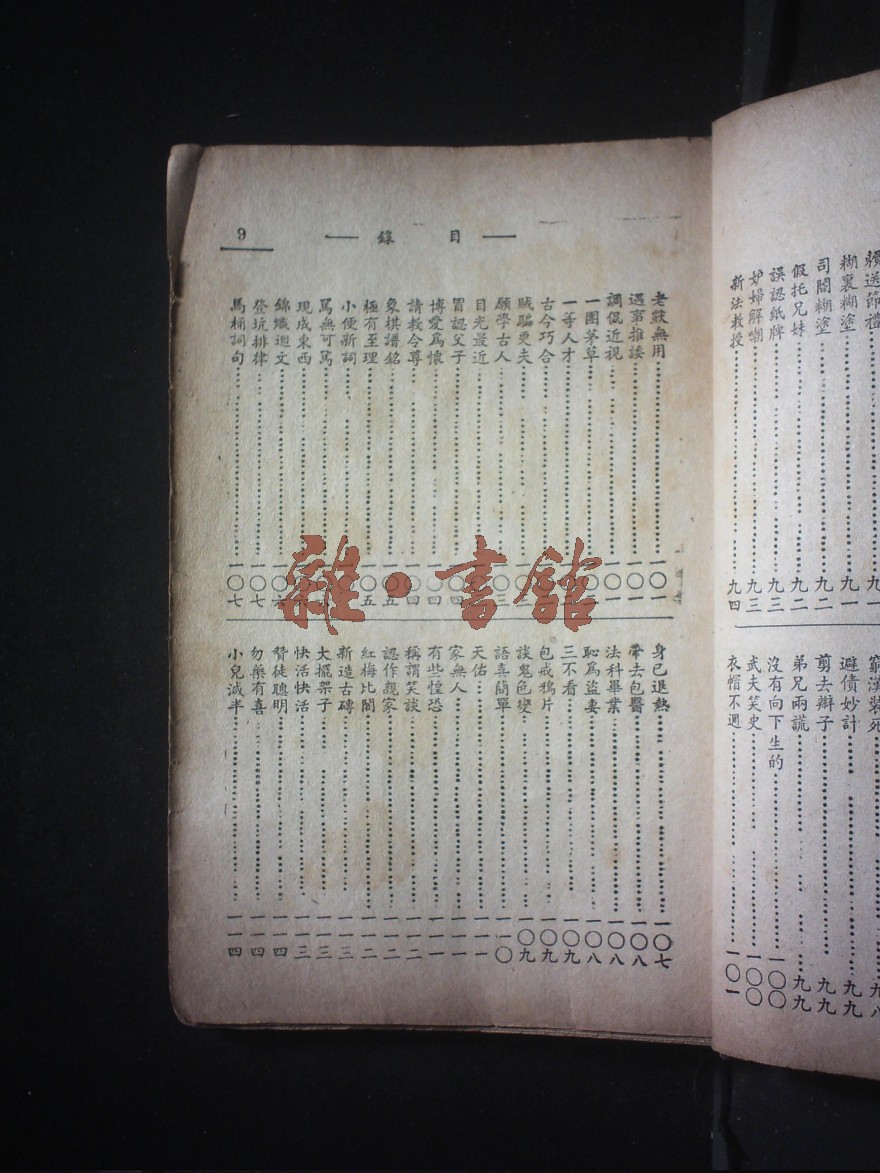 賴送節禮
糊裏糊塗……九一
司閽糊塗……九二
假托兄妹……九二
誤認紙牌……九三
妒婦解嘲……九三
新法教授……九四
窮漢裝死……九八
避債妙計……九九
剪去辮子……九九
弟兄兩謊……九九
沒有向下生的……一〇〇
武夫笑史……一〇〇
衣帽不週……一〇一
目錄
9
老鼓無用……一〇一
遇事推諉……一〇一
調侃近視……一〇一
一團茅草
一等人才
古今巧合
賊騙更夫
願學古人……一〇三
目光最近
冒認父子……一〇四
博愛爲懷……一〇四
請教令尊……一〇四
象棋譜銘……一〇五
極有至理……一〇五
小便新詞
罵無可罵
現成東西
錦織迴文
登坑排律……一〇七
馬桶詞句……一〇七
身已退熱……一〇七
帶去包醫……一〇八
法科畢業……一〇八
恥爲盜妻……一〇八
三不看……一〇九
包戒鴉片……一〇九
談鬼色變……一〇九
語喜簡單……一一〇
天佑……一一一
家無人……一一一
有些惶恐……一一一
稱謂笑談……一一二
認作親家……一一二
紅梅比閣……一一二
新造古磚……一一三
大擺架子……一一三
快活快活……一一三
聲徒聰明……一一四
勿藥有喜……一一四
小兒減半……一一四
雜·書館